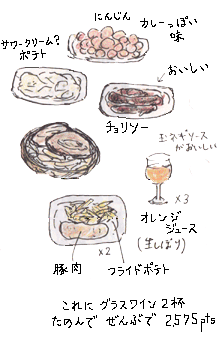 にんじん
カレーっぽい
味
サワークリーム?
ポテト
おいしい
チョリソー
玉ネギソース
がおいしい
×3
オレンジ
ジュース
(生しぼり)
×2
豚肉
フライドポテト
これに グラスワイン2杯
たのんで ぜんぶで 2,575pts